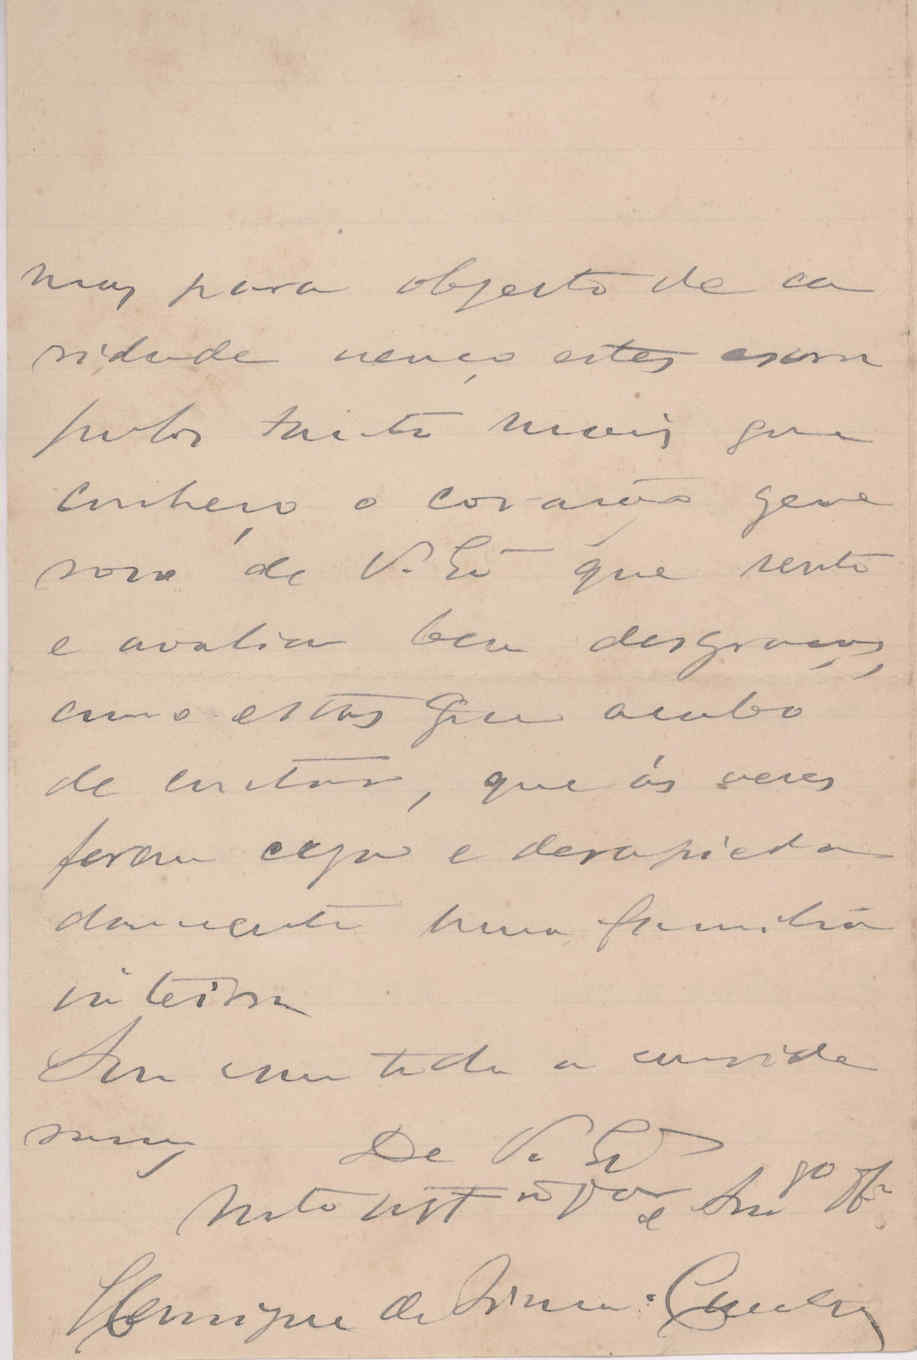 mas para objecto de ca
ridade venço estes escru
pulos tanto mais que
conheço o coração gene
roso de V. Exª que sente
e avalia bem desgraças,
como estas que acabo
de contar, que ás vezes
ferem cega e desapieda
damente uma familia
inteira
Sou com toda a conside
ração De V. Exª
Mto e Am.go
Henrique de Cunha